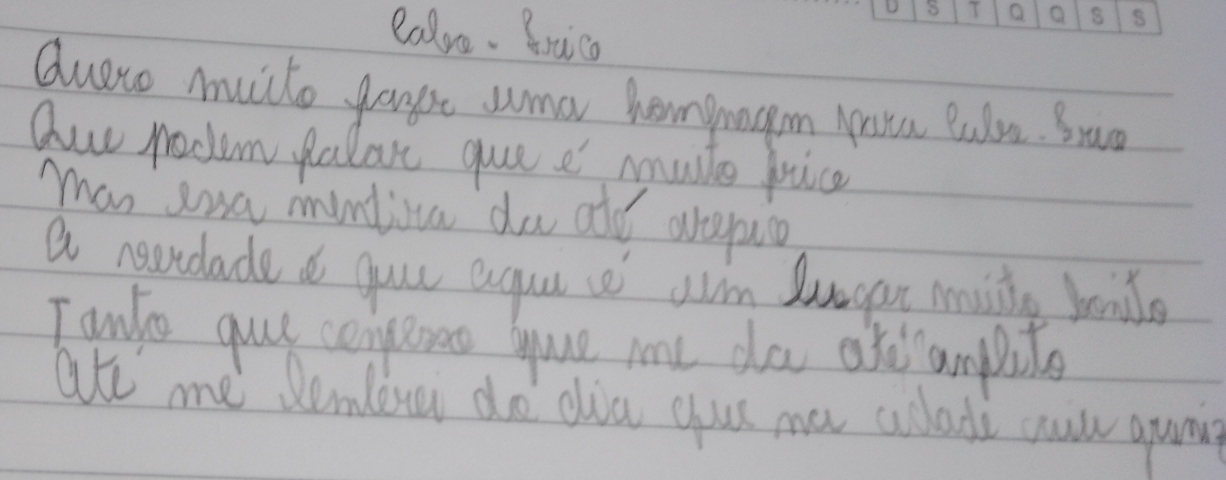 D S T Q Q S S
Cabo-Frico
Quero muito fazer uma homenagem para Cabo-Frico
Que podem falar que é muito frico
Mas essa mentira da até arepico
A verdade é que aqui é um lugar muito bonito
Tanto que confesso que me da até
Até me lembrei do dia que na cidade caiu